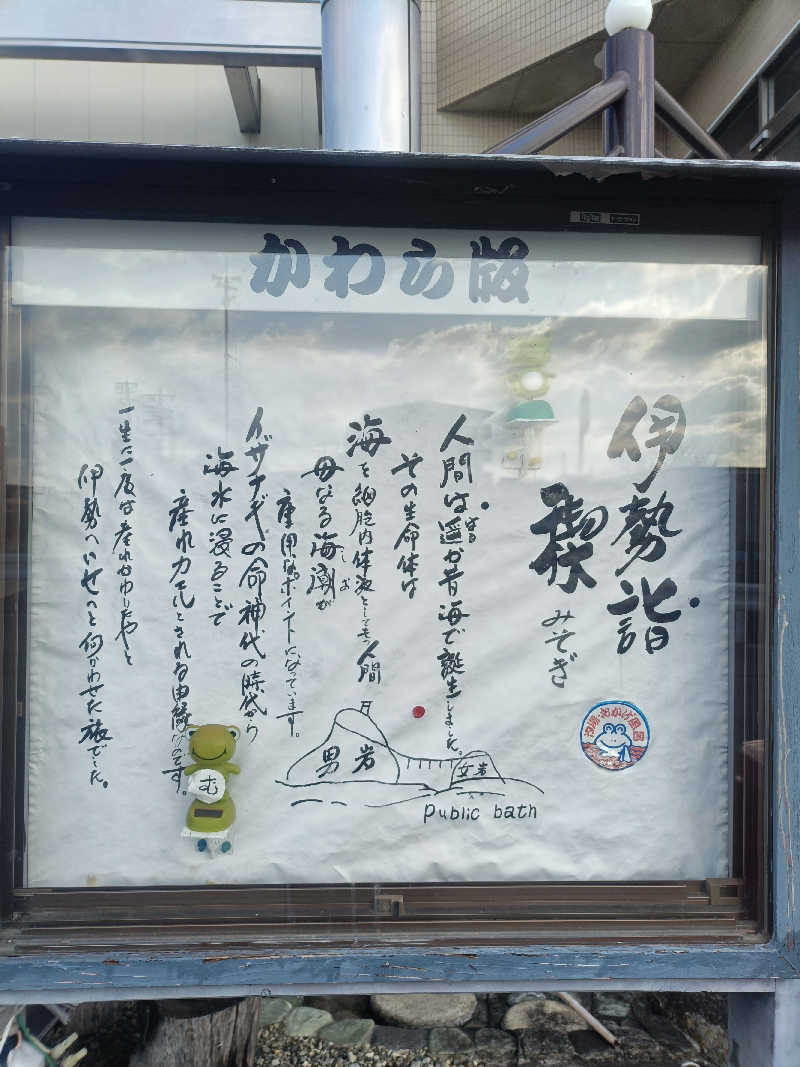 かわら版
伊勢詣
禊 みそぎ
人間は遥か昔海で誕生しました。
はる
その生命体は
海を細胞内体液としてもつ人間
母なる海潮が
しお
重用なポイントになっています。
イザナギの命神代の時代から
海水に浸ることで
産れ力
とされる由縁
です。
一生に一度は
伊勢へいせへと向かわせた旅でした。
む
男岩
女岩
Public bath